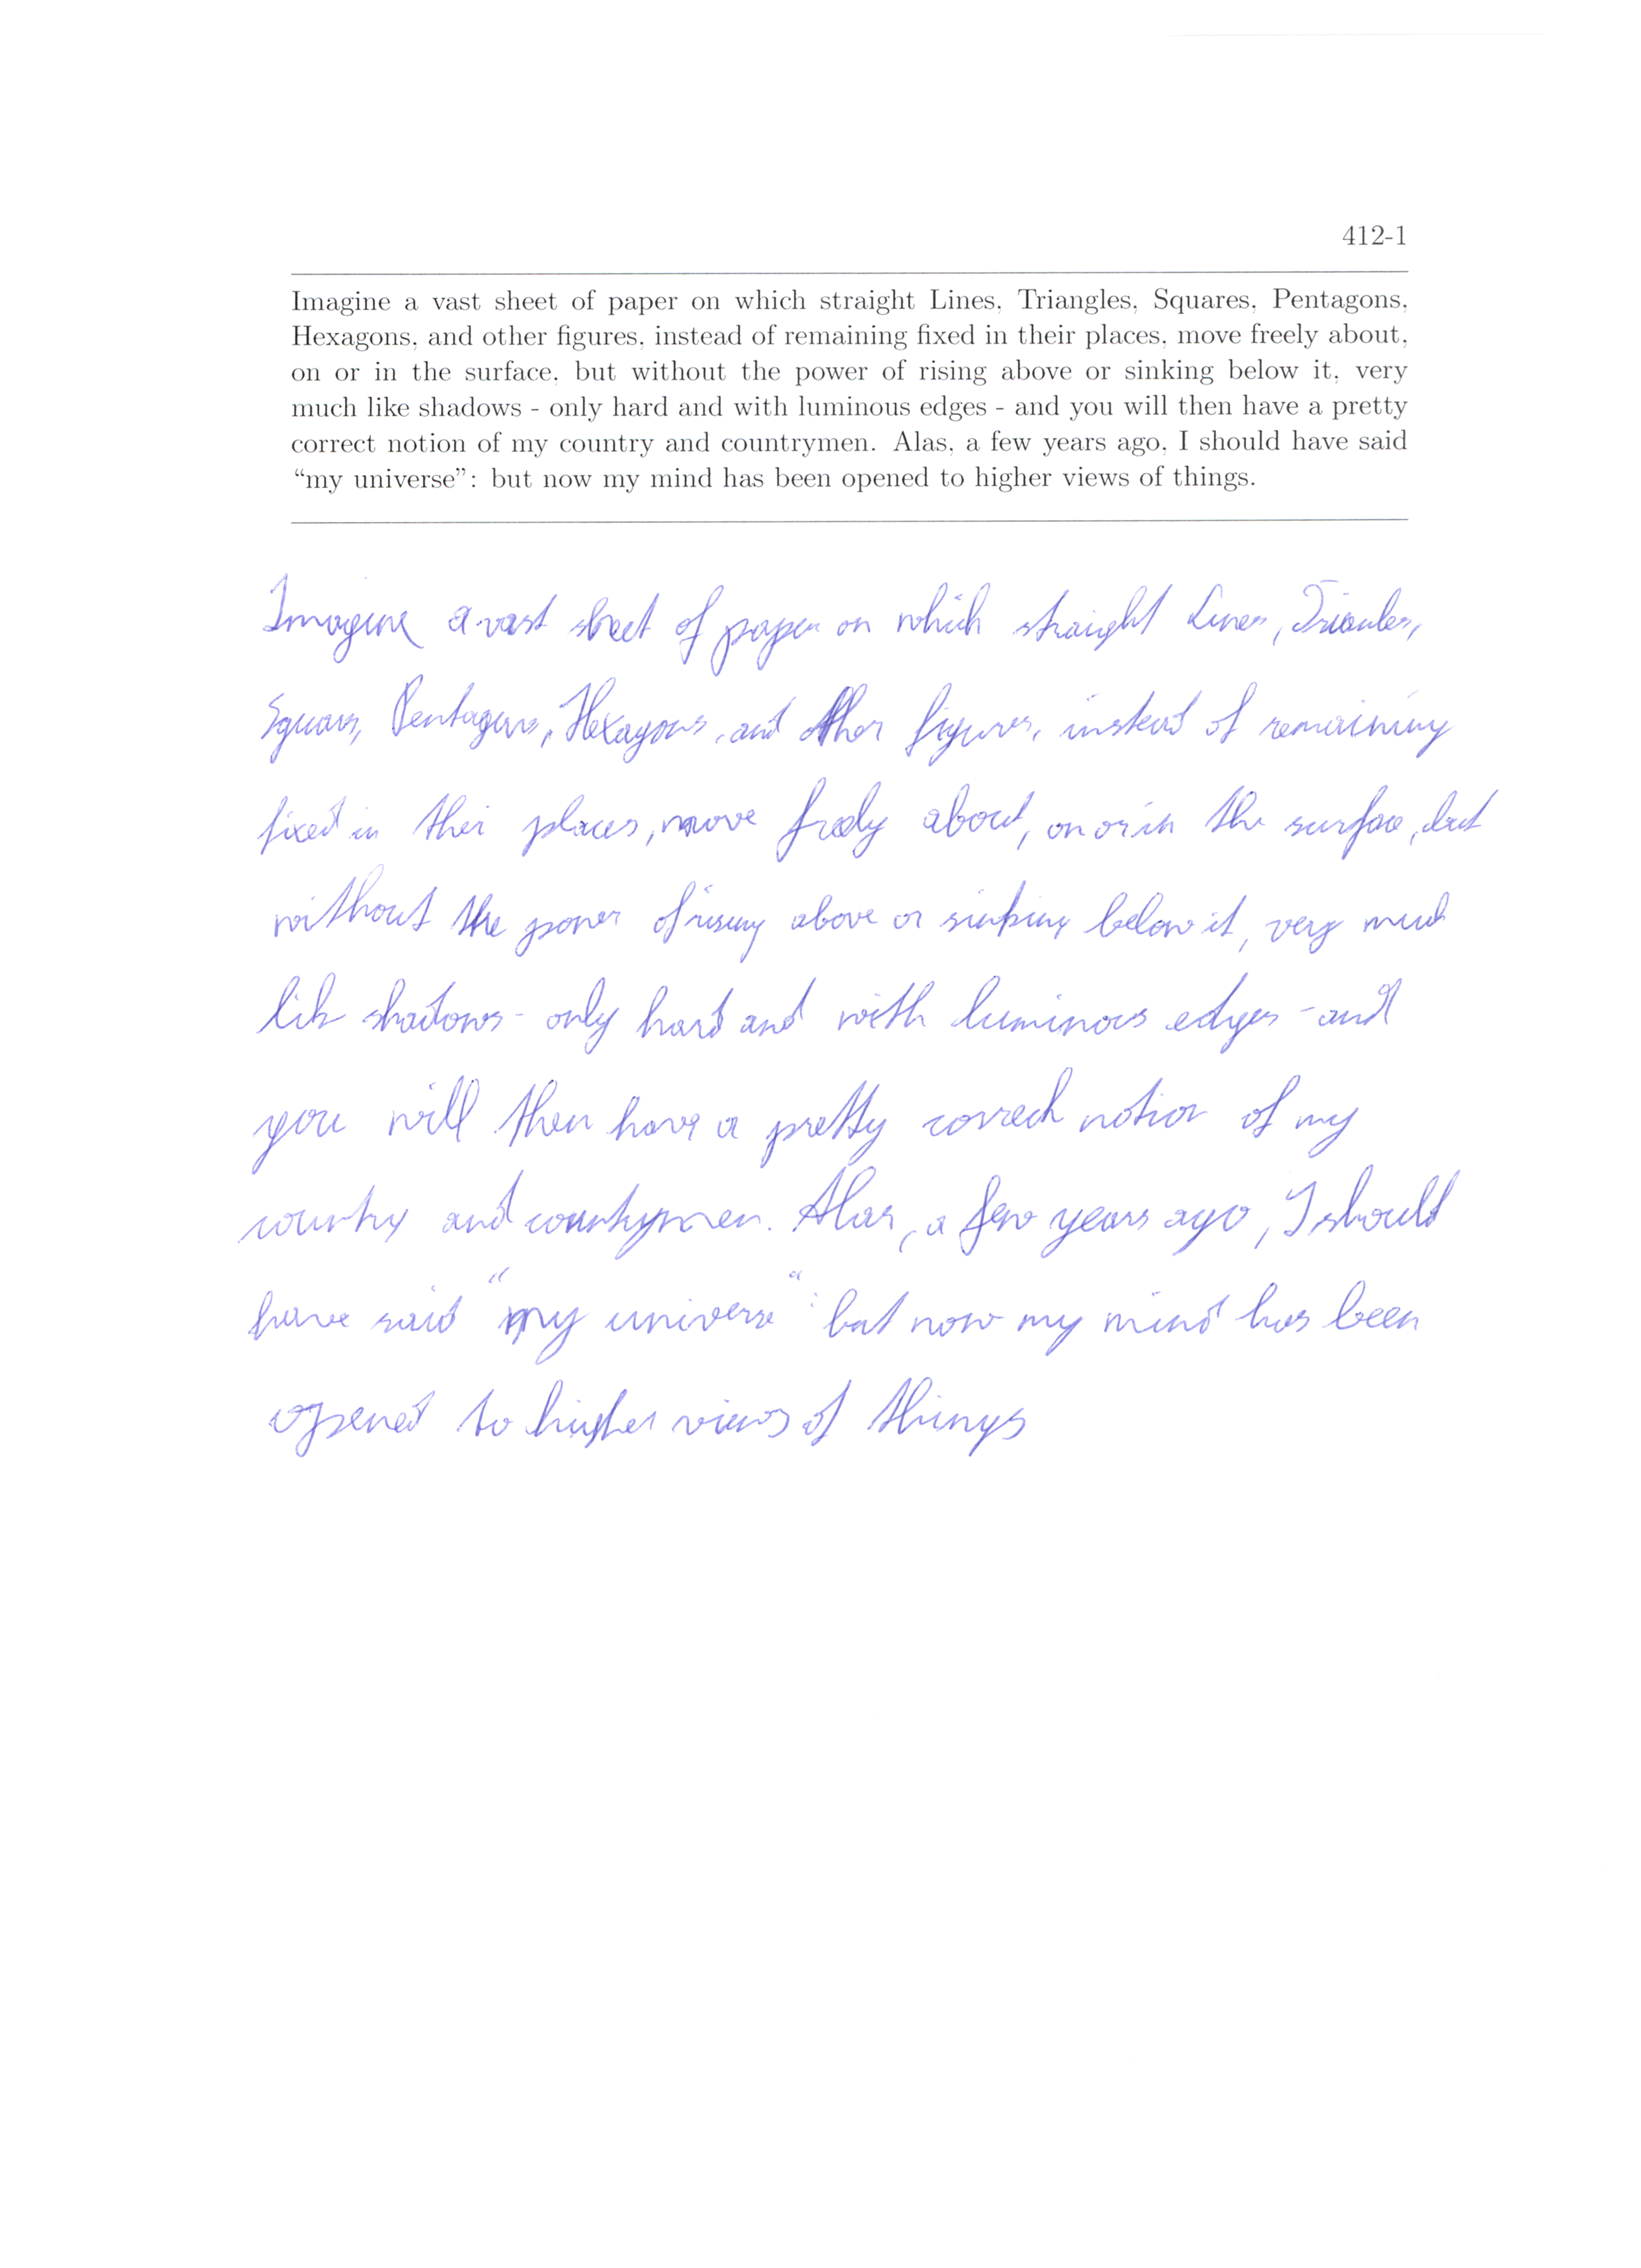 412-1
Imagine a vast sheet of paper on which straight Lines, Triangles, Squares, Pentagons,
Hexagons, and other figures, instead of remaining fixed in their places, move freely about,
on or in the surface, but without the power of rising above or sinking below it, very
much like shadows - only hard and with luminous edges - and you will then have a pretty
correct notion of my country and countrymen. Alas, a few years ago, I should have said
“my universe”: but now my mind has been opened to higher views of things.
Imagine a vast sheet of paper on which straight Lines, Trianles,
Squars, Pentagons, Hexagons, and other figures, instead of remaining
fixed in their places, move freely about, on or in the surface, but
without the power of rising above or sinking below it, very much
like shadows - only hard and with luminous edges - and
you will then have a pretty correct notion of my
country and countrymen. Alas, a few years ago, I should
have said "my universe": but now my mind has been
opened to higher views of things